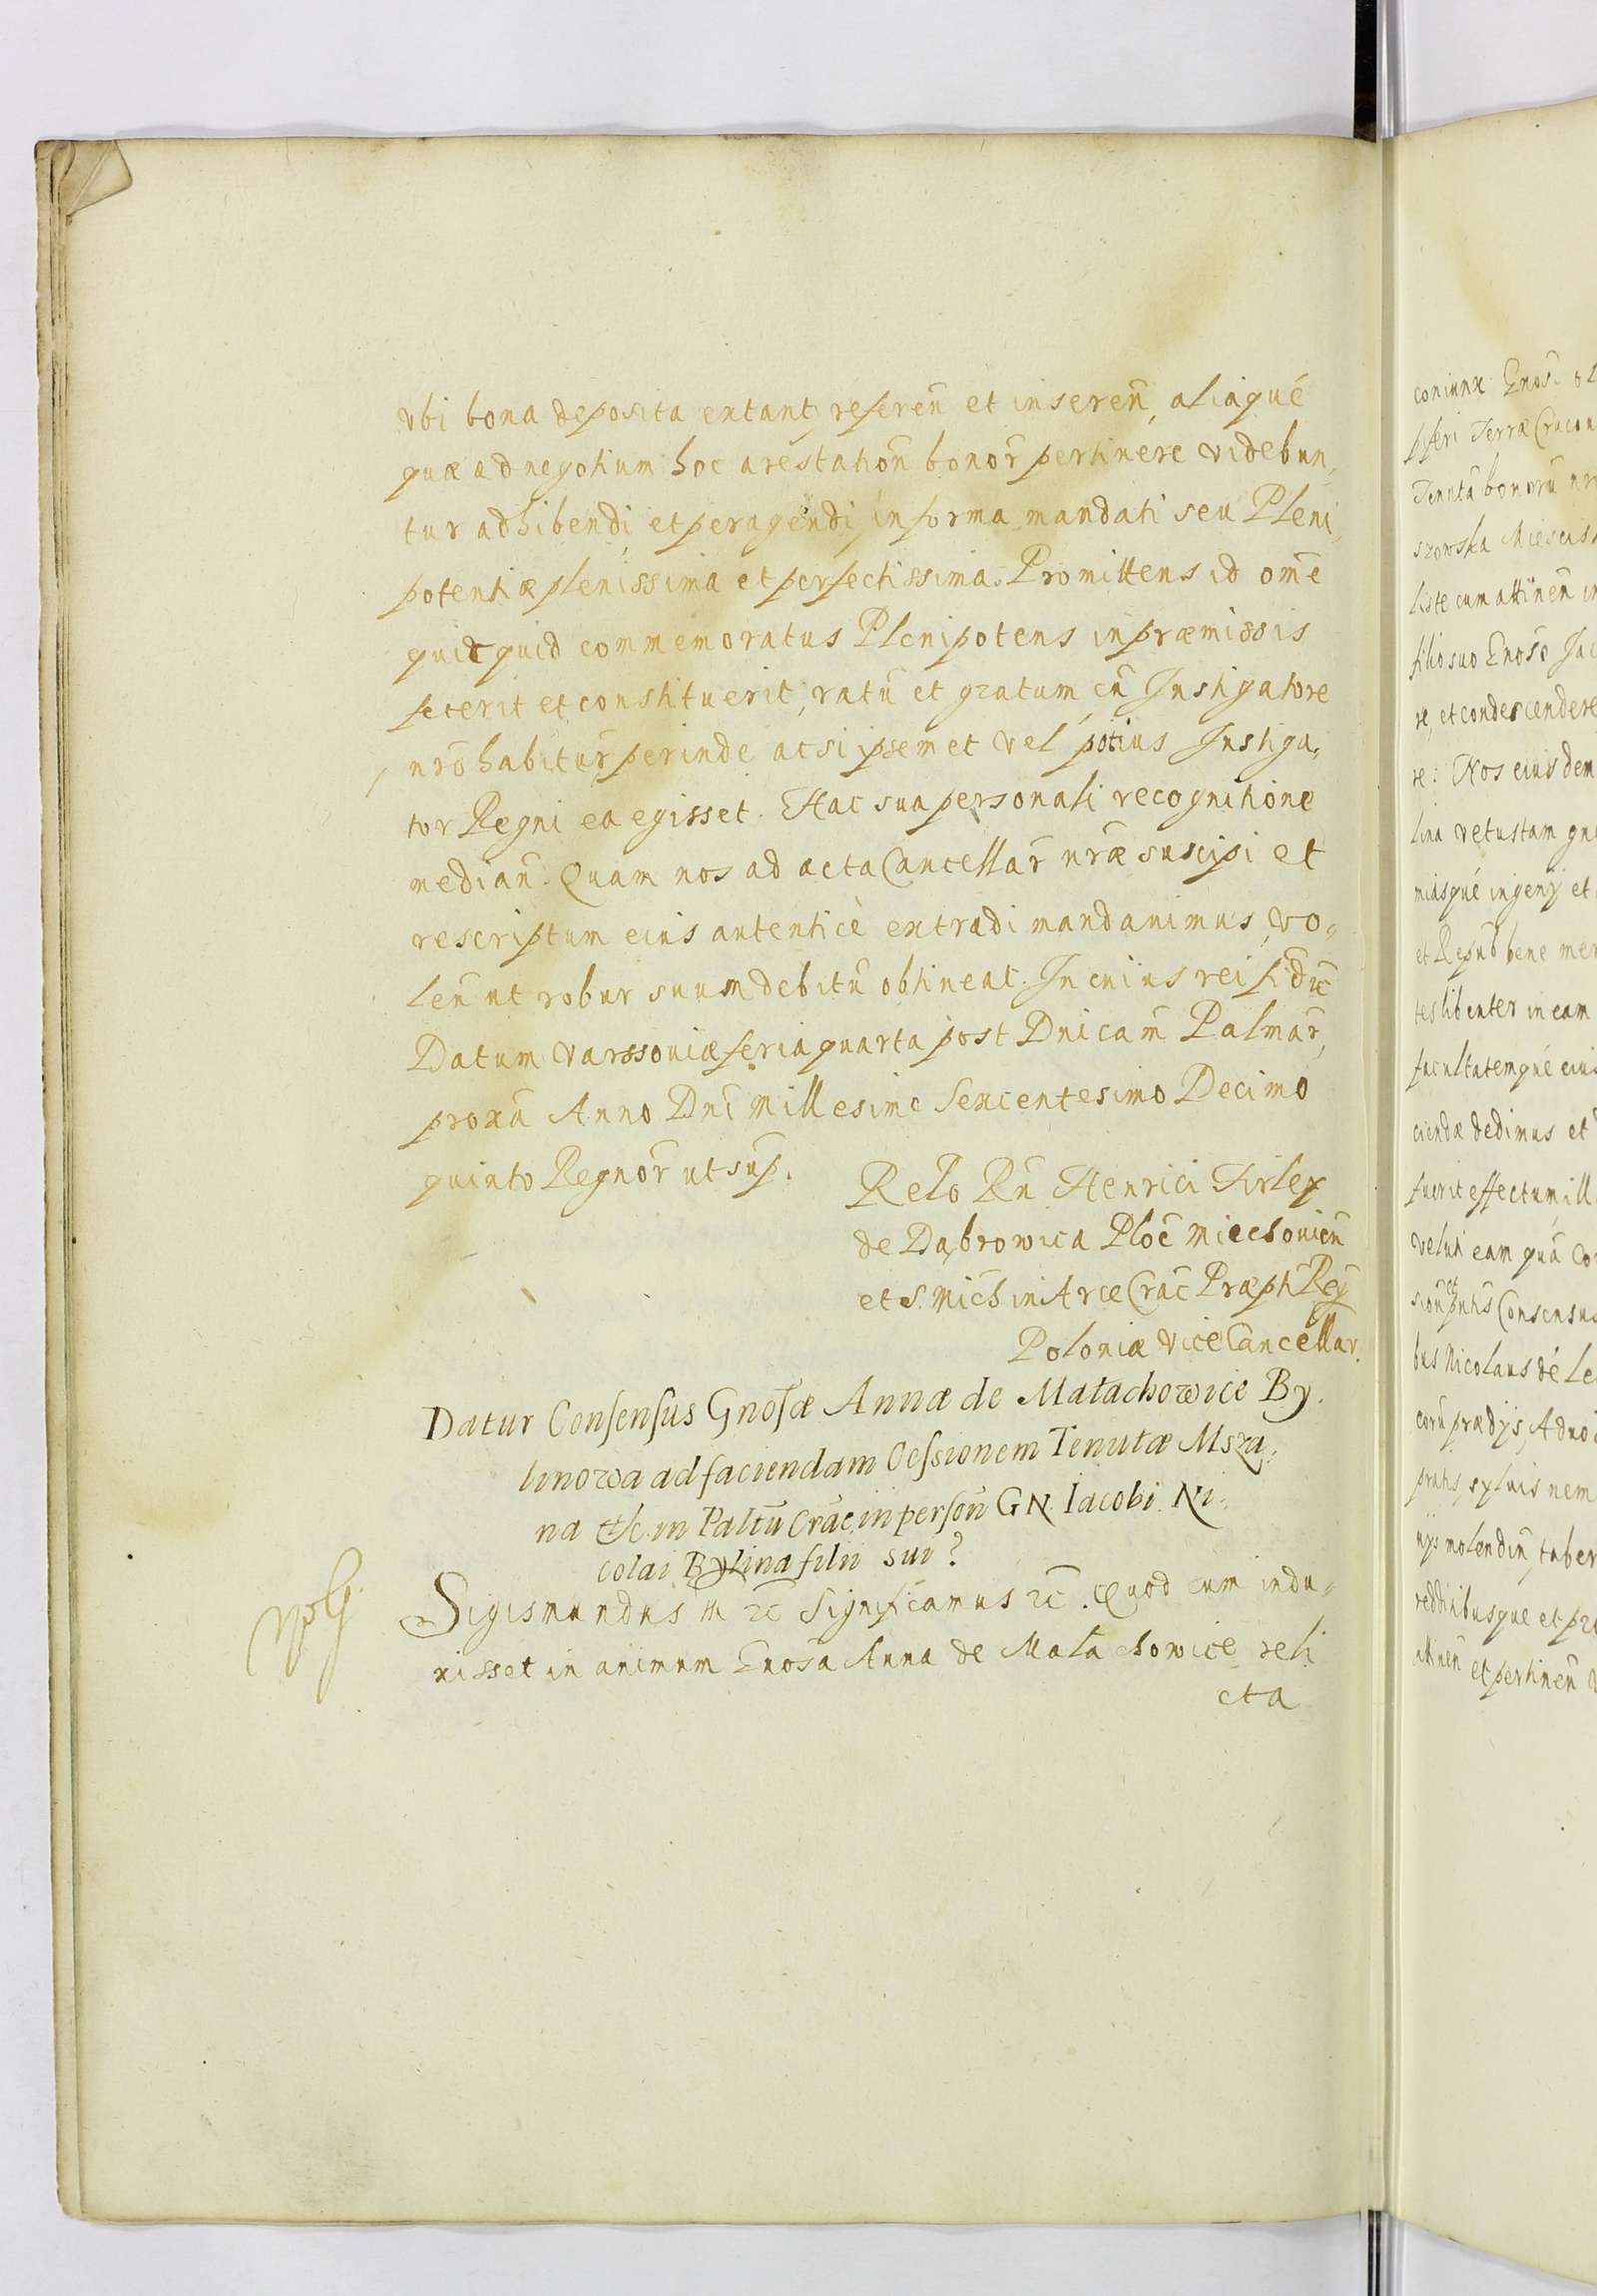 vbi bona deposita extant, referen̄ et inseren̄, aliaqué
quæ ad negotium hoc arestation̄ bonor̄ pertinére videbun„
tur adhibendi et peragéndi, in forma mandati seu Pleni„
potentiæ plenissima et perfectissima. Promittens id om̄e
quicquid commemoratus Plenipotens in præmissis
fecerit et constituerit, ratū et gratum cū Instigatore
nr̄o habitur̄ perinde acsi ipsemet vel potius Instiga„
tor Regni ea egisset. Hac sua personali recognitione
median̄. Quam nos ad acta Cancellar̄ nr̄æ suscipi et
rescriptum eius autenticè extradi mandauimus, vo„
len̄ ut robur suum debitū obtineat. In cuius rei fid ꝛc̄
Datum Varssouiæ feria quarta post Dnicam̄ Palmar̄,
proxū Anno Dnī Millesimo Sexcentesimo Decimo
quinto Regnor̄ ut sup̄.
Relo Rn̄ Henrici Firley
de Dąbrowica Ploc̄ Miechouien̄
et S. Mich̄ in Arce Crac̄ Præpti Rēg
Poloniæ ViceCancellar.
Datur Consensus Gnosæ Annæ de Małachowice By„
linowa ad faciendam Cessionem Tenutæ Msza„
na &c. in Paltū Crāc. in persōn GN. Iacobi Ni„
colai Bylina filii sui?
Sigismundus III ꝛc̄ Significamus ꝛc̄. Quod cum indu„
xisset in animum Gnosa Anna de Małachowice reli
cta
coniunx Gnosi ol
pferi Terræ Cracou
Tenutā bonorū nr
liste cum attinen̄ in
filio suo Gnoso Jac
re, et condescendere
re: Nos eiusdem
lina vetustam gn
miasqué ingenij et
et Repub bene mer
tes libenter in eam
facultatemqué eius
ciendæ dedimus et
fuerit effectum ill
Velut eam quā Co
Consensus
bus Nicolaus de Le
corū prædijs, Aduoc
pratis, syluis nem
ijs molendin̄, taber
redditibusque et pro
attinen̄ et pertinen̄ v